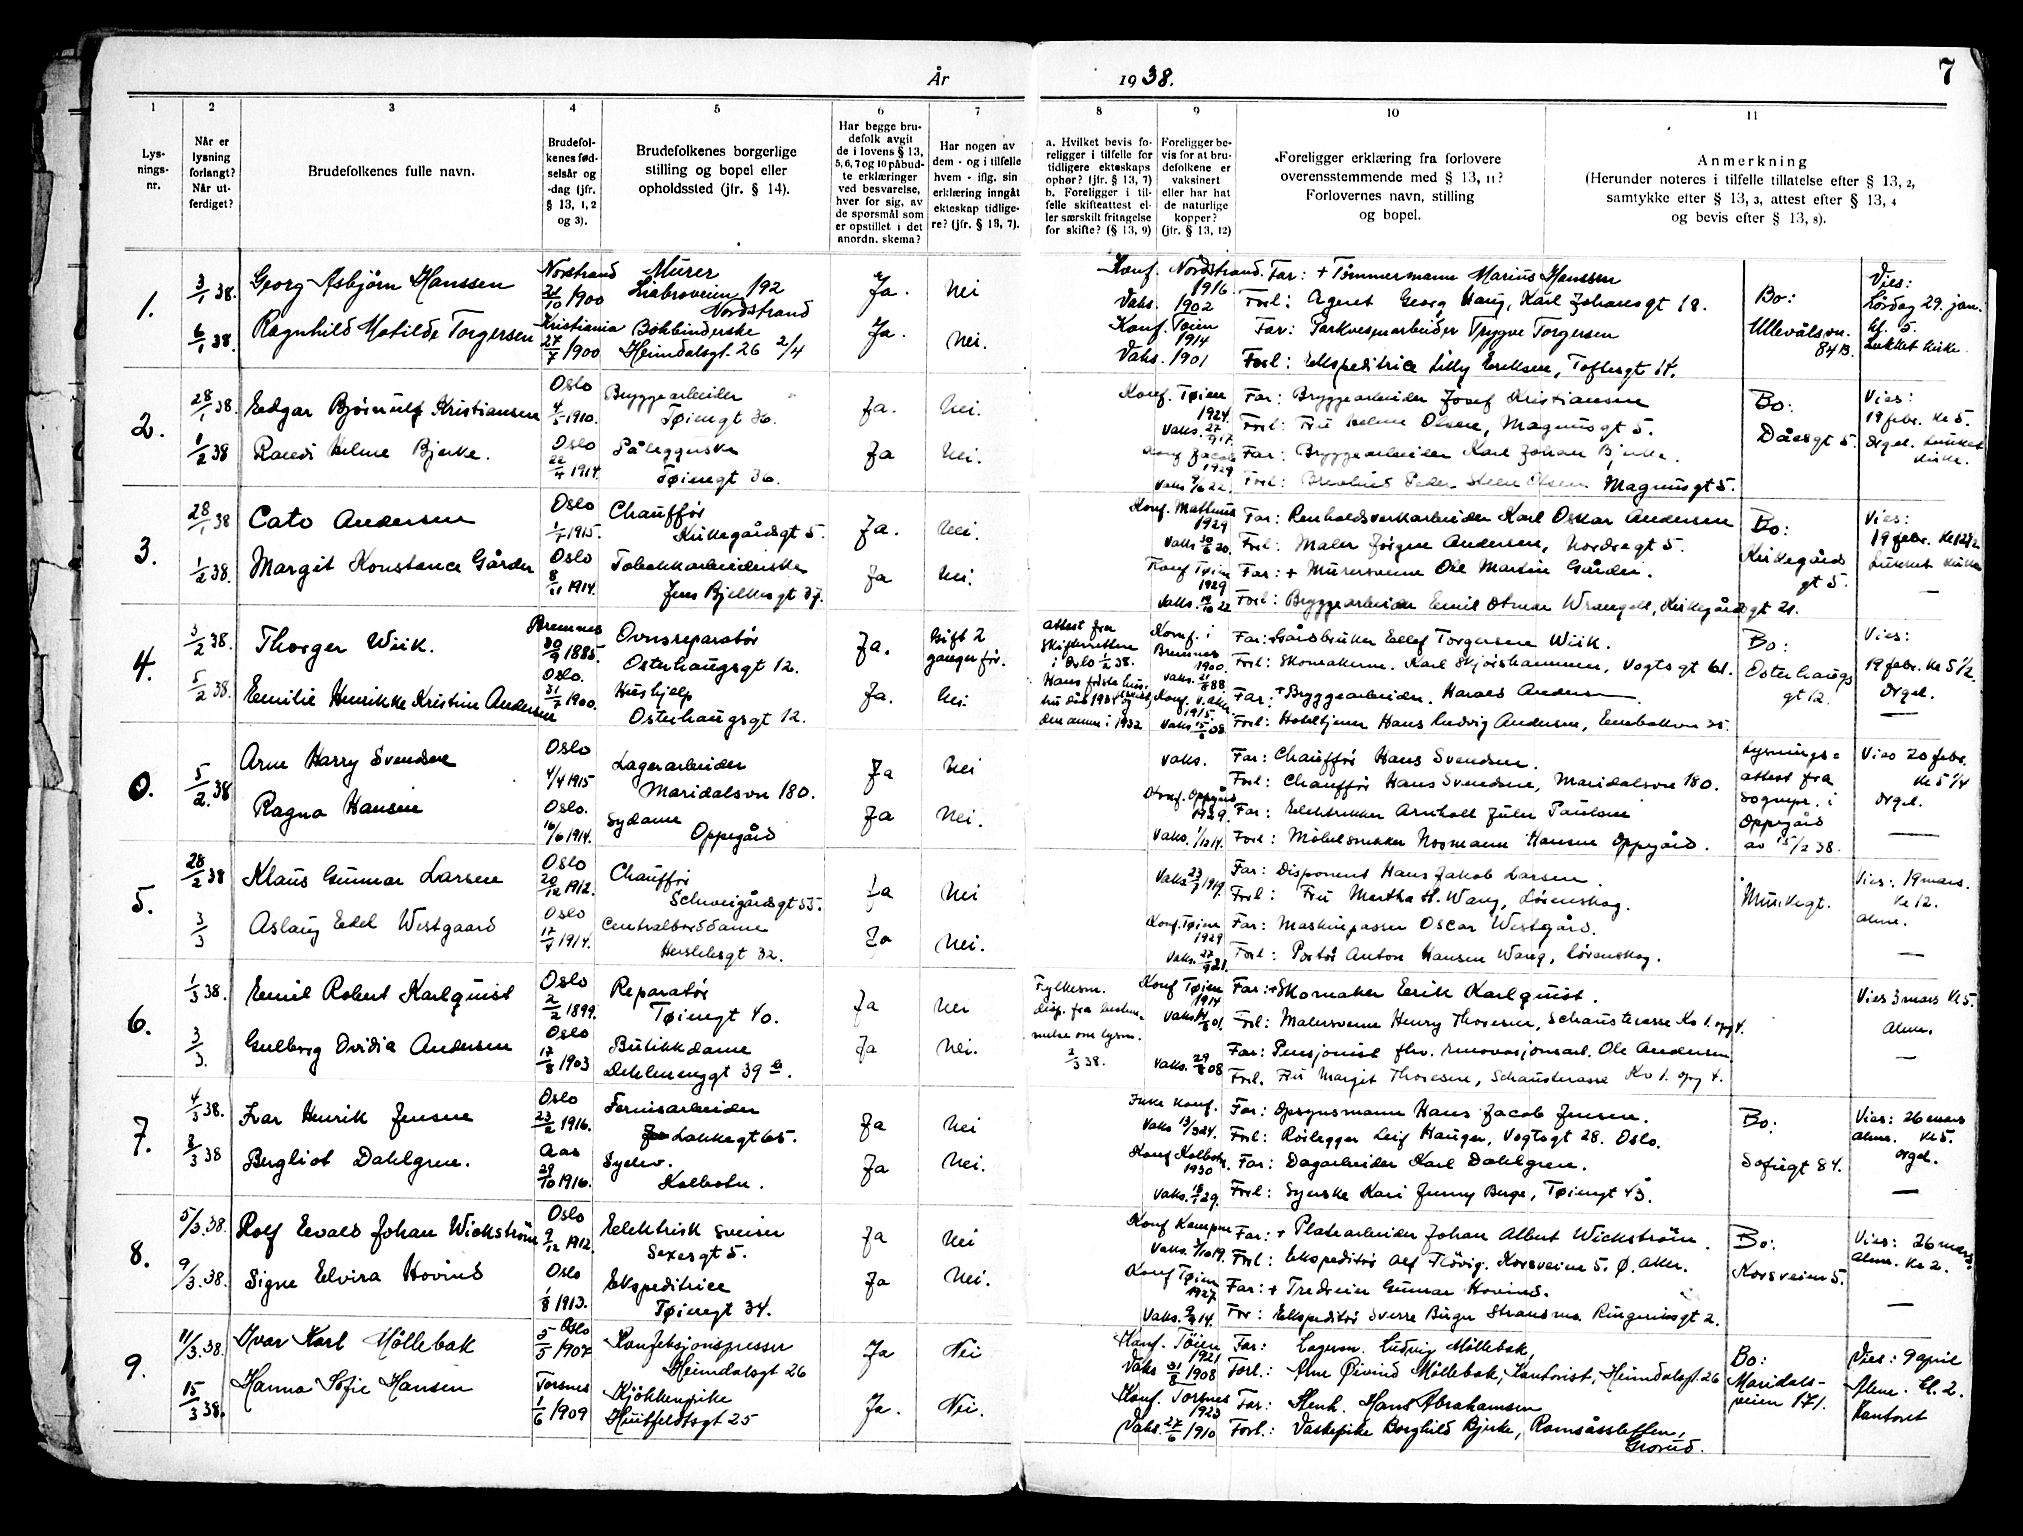 År 1938. 7
1 2 3 4 5 6 7 8 9 10 11
Lys-
nings-
nr.
Når er
lysning
forlangt?
Når ut-
ferdiget?
Brudefolkenes fulle navn.
Brudefol-
kenes fød-
selsår og
-dag (jfr.
§ 13, 1, 2
og 3).
Brudefolkenes borgerlige
stilling og bopel eller
opholdssted (jfr. § 14).
Har begge bru-
defolk avgit
de i lovens § 13,
5, 6, 7 og 10 påbud-
te erklæringer
ved besvarelse,
hver for sig, av
de spørsmål som
er opstillet i det
anordn. skema?
Har nogen av
dem - og i tilfelle
hvem - iflg. sin
erklæring inngått
ekteskap tidlige-
re? (jfr. § 13, 7).
a. Hvilket bevis fo-
religger i tilfelle for
tidligere ekteskaps
ophør? (jfr. § 13, 7)
b. Foreligger i til-
felle skifteattest el-
ler særskilt fritagelse
for skifte? (§ 13, 9)
Foreligger be-
vis for at bru-
defolkene er
vaksinert
eller har hat
de naturlige
kopper?
(jfr. § 13, 12)
Foreligger erklæring fra forlovere
overensstemmende med § 13, 11?
Forlovernes navn, stilling
og bopel.
Anmerkning
(Herunder noteres i tilfelle tillatelse efter § 13, 2,
samtykke efter § 13, 3, attest efter § 13, 4
og bevis efter § 13, 8).
1.
3/1 38. Georg Asbjørn Hanssen Nordstrand 21/10 1900 Murer
Liabroveien 192
Nordstrand Ja. Nei
Konf. Nordstrand 1916. Vaks. 1902
Far: + Tømmermann Marius Hanssen
Forl: Agent Georg Haug, Karl Johansgt 18.
6/1 38. Ragnhild Matilde Torgersen Kristiania 27/7 1900 Bokbinderske
Heimdalsgt. 26 2/4 Ja. Nei.
Konf. Tøien 1914 Vaks. 1901
Far: Parkvesenarbeider Trygve Torgersen
Forl: Ekspeditrice Lilly Eriksen, Toftesgt 14.
Bo:
Ullevålsvn.
84 B.
Vies:
Lördag 29. jan.
kl. 5.
Lukket kirke.
2.
28/1 38. Edgar Bjørnulf Kristiansen Oslo 4/5 1910. Bryggearbeider
Tøiengt 36. Ja. Nei.
Konf. Tøien 1924.
Far: Bryggearbeider Josef Kristiansen
Forl: Fru Helene Olsen, Magnusgt 5.
1/2 38 Randi Helene Bjerke. Oslo 1914. Påleggsske
Tøiengt 36. Ja Nei.
Konf Jacob 1929
Far: Bryggearbeider Karl Johan Bjerke.
Forl: Peder Olsen Magnusgt 5.
Bo:
Dåesgt 5.
Vies:
19 febr. kl 5.
Orgel. Lukket
kirke.
3.
28/1 38 Cato Andersen Oslo 1915. Chauffør
Kirkegårdsgt 5. Ja. Nei.
Konf. Matheus 1929 Vaks 30/6 20.
Far: Renholdsverkarbeider Karl Oskar Andersen
Forl: Maler Jørgen Andersen, Nordregt 5.
1/2 38. Margit Konstance Gården Oslo 8/11 1914. Tobakkarbeiderske
Jens Bjelkesgt 37. Ja Nei.
Konf Tøien 1929 Vaks. 19/10 22
Far: + Murersvenn Ole Martin Gården.
Forl: Bryggearbeider Emil Otmar Wrangell, Kirkegårdsgt 21.
Bo:
Kirkegårds
gt 5.
Vies:
19 febr.
Lukket kirke
—
4.
3/2 38. Thorger Wiik. Bremnes 30/9 1885. Ovnsreparatør
Osterhaugsgt 12. Ja. Gift 2
ganger før.
Attest fra
Skifteretten
i Oslo 1/2 38.
Hans første hus-
tru død 1931
den annen i 1932
Konf. i Bremnes 1900. Vaks. 21/8 88
Far: + Gårdbruker Ellef Torgersen Wiik.
Forl: Skomakerm. Karl Skjørshammer, Vogtsgt 61.
5/2 38. Emilie Henrikke Kristine Andersen Oslo. 31/7 1900. Hushjelp
Osterhaugsgt 12. Ja. Nei.
Konf. V. Aker 1915. Vaks 15/6 08.
Far: + Bryggearbeider. Harald Andersen
Forl: Hotelltjener Hans Ludvig Andersen, Enebakkvn 25.
Bo:
Osterhaugs
gt 12.
Vies:
19 febr. kl 5 1/2.
Orgel.
—
0.
5/2. 38 Arne Harry Svendsen Oslo 4/4 1915 Lagerarbeider
Maridalsvn 180. Ja Nei
Vaks.
Far: Chauffør Hans Svendsen.
Forl: Chauffør Hans Svendsen, Maridalsvn 180.
Ragna Hansen Oslo. 16/6 1914. Sydame
Oppegård Ja Nei.
Konf. Oppegård 1929. Vaks. 1/12 14.
Far: Elektriker Arnholt Julin Paulsen
Forl: Møbelsnekker Normann Hansen Oppegård.
Lysnings-
attest fra
sognepr. i
Oppegård
av 15/2 38.
Vies 20 febr.
kl 5 1/4
Orgel.
—
5.
28/2 38 Klaus Gunnar Larsen Oslo 20/12 1912. Chauffør
Schweigårdsgt 55. Ja Nei
Vaks 23/7 1919.
Far: Disponent Hans Jakob Larsen.
Forl: Fru Martha H. Wang, Lørenskog.
3/3 Aslaug Edel Westgaard Oslo 17/4 1914. Centralborddame
Herslebsgt 32. Ja Nei.
Konf. Tøien 1929 Vaks. 27/9 21.
Far: Maskinpasser Oscar Westgård.
Forl: Portør Anton Hansen Wang, Lørenskog.
Munkegt.
Vies: 19 mars.
kl 12.
Alm.
—
6.
1/3 38. Emil Robert Karlquist Oslo 2/2 1899. Reparatør
Tøiengt 40. Ja Nei
Fylkesm.
disp. fra bestem-
melse om lysn.
2/3 38.
Konf Tøien 1914
Far: + Skomaker Erik Karlquist.
Forl: Malersvenn Henry Thoresen, Schausterasse Ko 1. opg 4.
3/3. Gulborg Ovidia Andersen Oslo 17/8 1903 Butikkdame
Dehlenenggt 39 B. Ja Nei.
Vaks. 29/8 08
Far: Pensjonist fhv. renovasjonsarb. Ole Andersen
Forl. Fru Margit Thoresen, Schausterasse Ko 1. opg 4.
Vies 3 mars kl 5.
Alm.
—
7.
4/3 38. Ivar Henrik Jensen Oslo 23/2 1916. Fernisarbeider
Lakkegt 65. Ja Nei
Ikke konf. Vaks 13/3 24.
Far: Opsynsmann Hans Jacob Jensen.
Forl: Rørlegger Leif Hauger, Vogtsgt 28. Oslo.
8/3 38 Bergliot Dahlgren. Aas 29/10 1916. Syelev.
Kolbotn. Ja Nei.
Konf Kolbotn 1930 Vaks. 18/1 29.
Far: Dagarbeider Karl Dahlgren.
Forl: Syerske Kari Jenny Berge, Tøiengt 43.
Bo:
Sofiegt 84.
Vies: 26 mars
Alm. kl 5.
Orgel.
—
8.
5/3. 38. Rolf Evald Johan Wickstrøm Oslo 9/12 1912. Elektrisk sveiser
Sexesgt 5. Ja Nei
Konf Kampen
Far: + Platearbeider Johan Albert Wickstrøm.
Forl: Ekspeditør Alf Fløvig. Korsveien 5. Ø. Aker.
9/3. 38. Signe Elvira Hovind Oslo 1/8 1913. Ekspeditrice
Tøiengt 34. Ja Nei.
Konf Tøien 1927.
Far: + Tredreier Gunnar Hovind.
For: Ekspeditør Sverre Birger Strandmo Ringeriksgt 2.
Bo:
Korsveien 5.
Vies: 26 mars.
Alm. kl 2.
—
9.
11/3. 38. Ivar Karl Möllebak Oslo 5/5 1907 Konfeksjonspresser
Heimdalsgt 26 Ja Nei
Konf. Töien 1921 Vaks 31/8 1908
Far: Lagerm. Ludvig Möllebak,
Forl.: Arne Øivind Möllebak, Kontorist, Heimdalsgt. 26
15/3 38. Hanna Sofie Hansen Torsnes 1/6 1909 Kjökkenpike
Huitfeldtsgt 25 Ja. Nei.
Konf. Torsnes 1923 Vaks. 27/6 1910
Far: Slenk. Hans Abrahamsen
Forl.: Vaskepike Borghild Bjerke, Romsåssletten,
Grorud.
Bo:
Maridals-
veien 171.
Vies: 9 april
Alm. kl. 2.
Kontoret